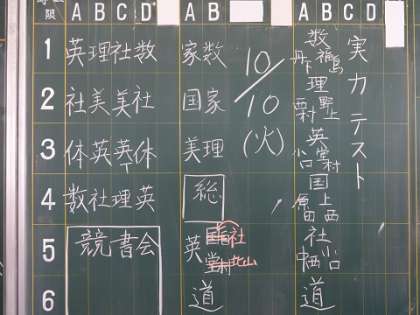 限 A B C D A B A B C D
1 英理社数 家数 10/10 (火) 数 実力テスト
2 社美美社 国家 理
3 体英英体 美理 英 小口 堂村
4 数社理英 総 国 上西
5 競書会 英 社 堂村 北山 社 小口
6 道 道